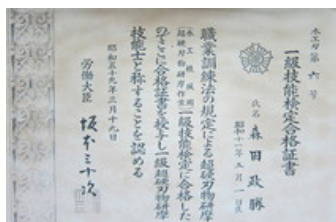 木工刃第六号
一級技能検定合格証書
氏名 森田政勝
昭和十一年 月一日生
職業訓練法の規定による超硬刃物研摩
(木工機械用超硬刃物研摩作業)一級技能検定に合格した
のでここに合格証書を授与し一級超硬刃物研摩
技能士と称することを認める
昭和五十九年三月十九日
労働大臣 坂本三十次